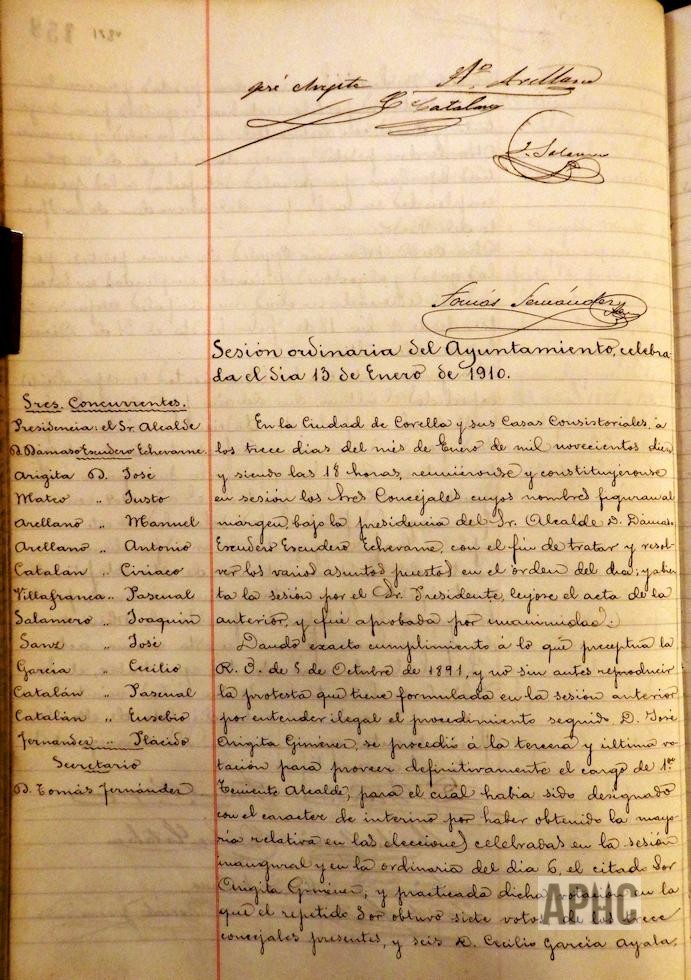 José Arigita
M. Arellano
C. Catalán
J. Salamero
Tomás Fernández
Sesión ordinaria del Ayuntamiento, celebra-
da el día 13 de Enero de 1910.
Sres. Concurrentes.
Presidencia: el Sr. Alcalde
D. Dámaso Escudero Echevarne
Arigita D. José
Mateo „ Justo
Arellano „ Manuel
Arellano „ Antonio
Catalán „ Ciriaco
Villafranca „ Pascual
Salamero „ Joaquín
Sanz „ José
García „ Cecilio
Catalán „ Pascual
Catalán „ Eusebio
Fernández „ Plácido
Secretario
D. Tomás Fernández
En la Ciudad de Corella y sus Casas Consistoriales, á
los trece dias del mes de Enero de mil novecientos diez
y siendo las 18 horas, reuniéronse y constituyéronse
en sesión los Sres Concejales cuyos nombres figuran al
márgen, bajo la presidencia del Sr. Alcalde D. Dámaso
Escudero Escudero Echevarne, con el fin de tratar y resol-
ver los varios asuntos puestos en el órden del dia; y abier-
ta la sesión por el Sr. Presidente, leyóse el acta de la
anterior, y fué aprobada por unanimidad.
Dando exacto cumplimiento á lo que preceptúa la
R. O. de 5 de Octubre de 1891, y no sin antes reproducir
la protesta que tiene formulada en la sesión anterior
por entender ilegal el procedimiento seguido D. José
Arigita Giménez, se procedió á la tercera y última vo-
tación para proveer definitivamente el cargo de 1.er
Teniente Alcalde, para el cual habia sido designado
con el caracter de interino por haber obtenido la mayo-
ría relativa en las elecciones celebradas en la sesión
inaugural y en la ordinaria del dia 6, el citado Sor
Arigita Giménez, y practicada dicha votación en la
que el repetido Sor obtuvo siete votos de los trece
concejales presentes, y seis D. Cecilio García Ayala,
APHC